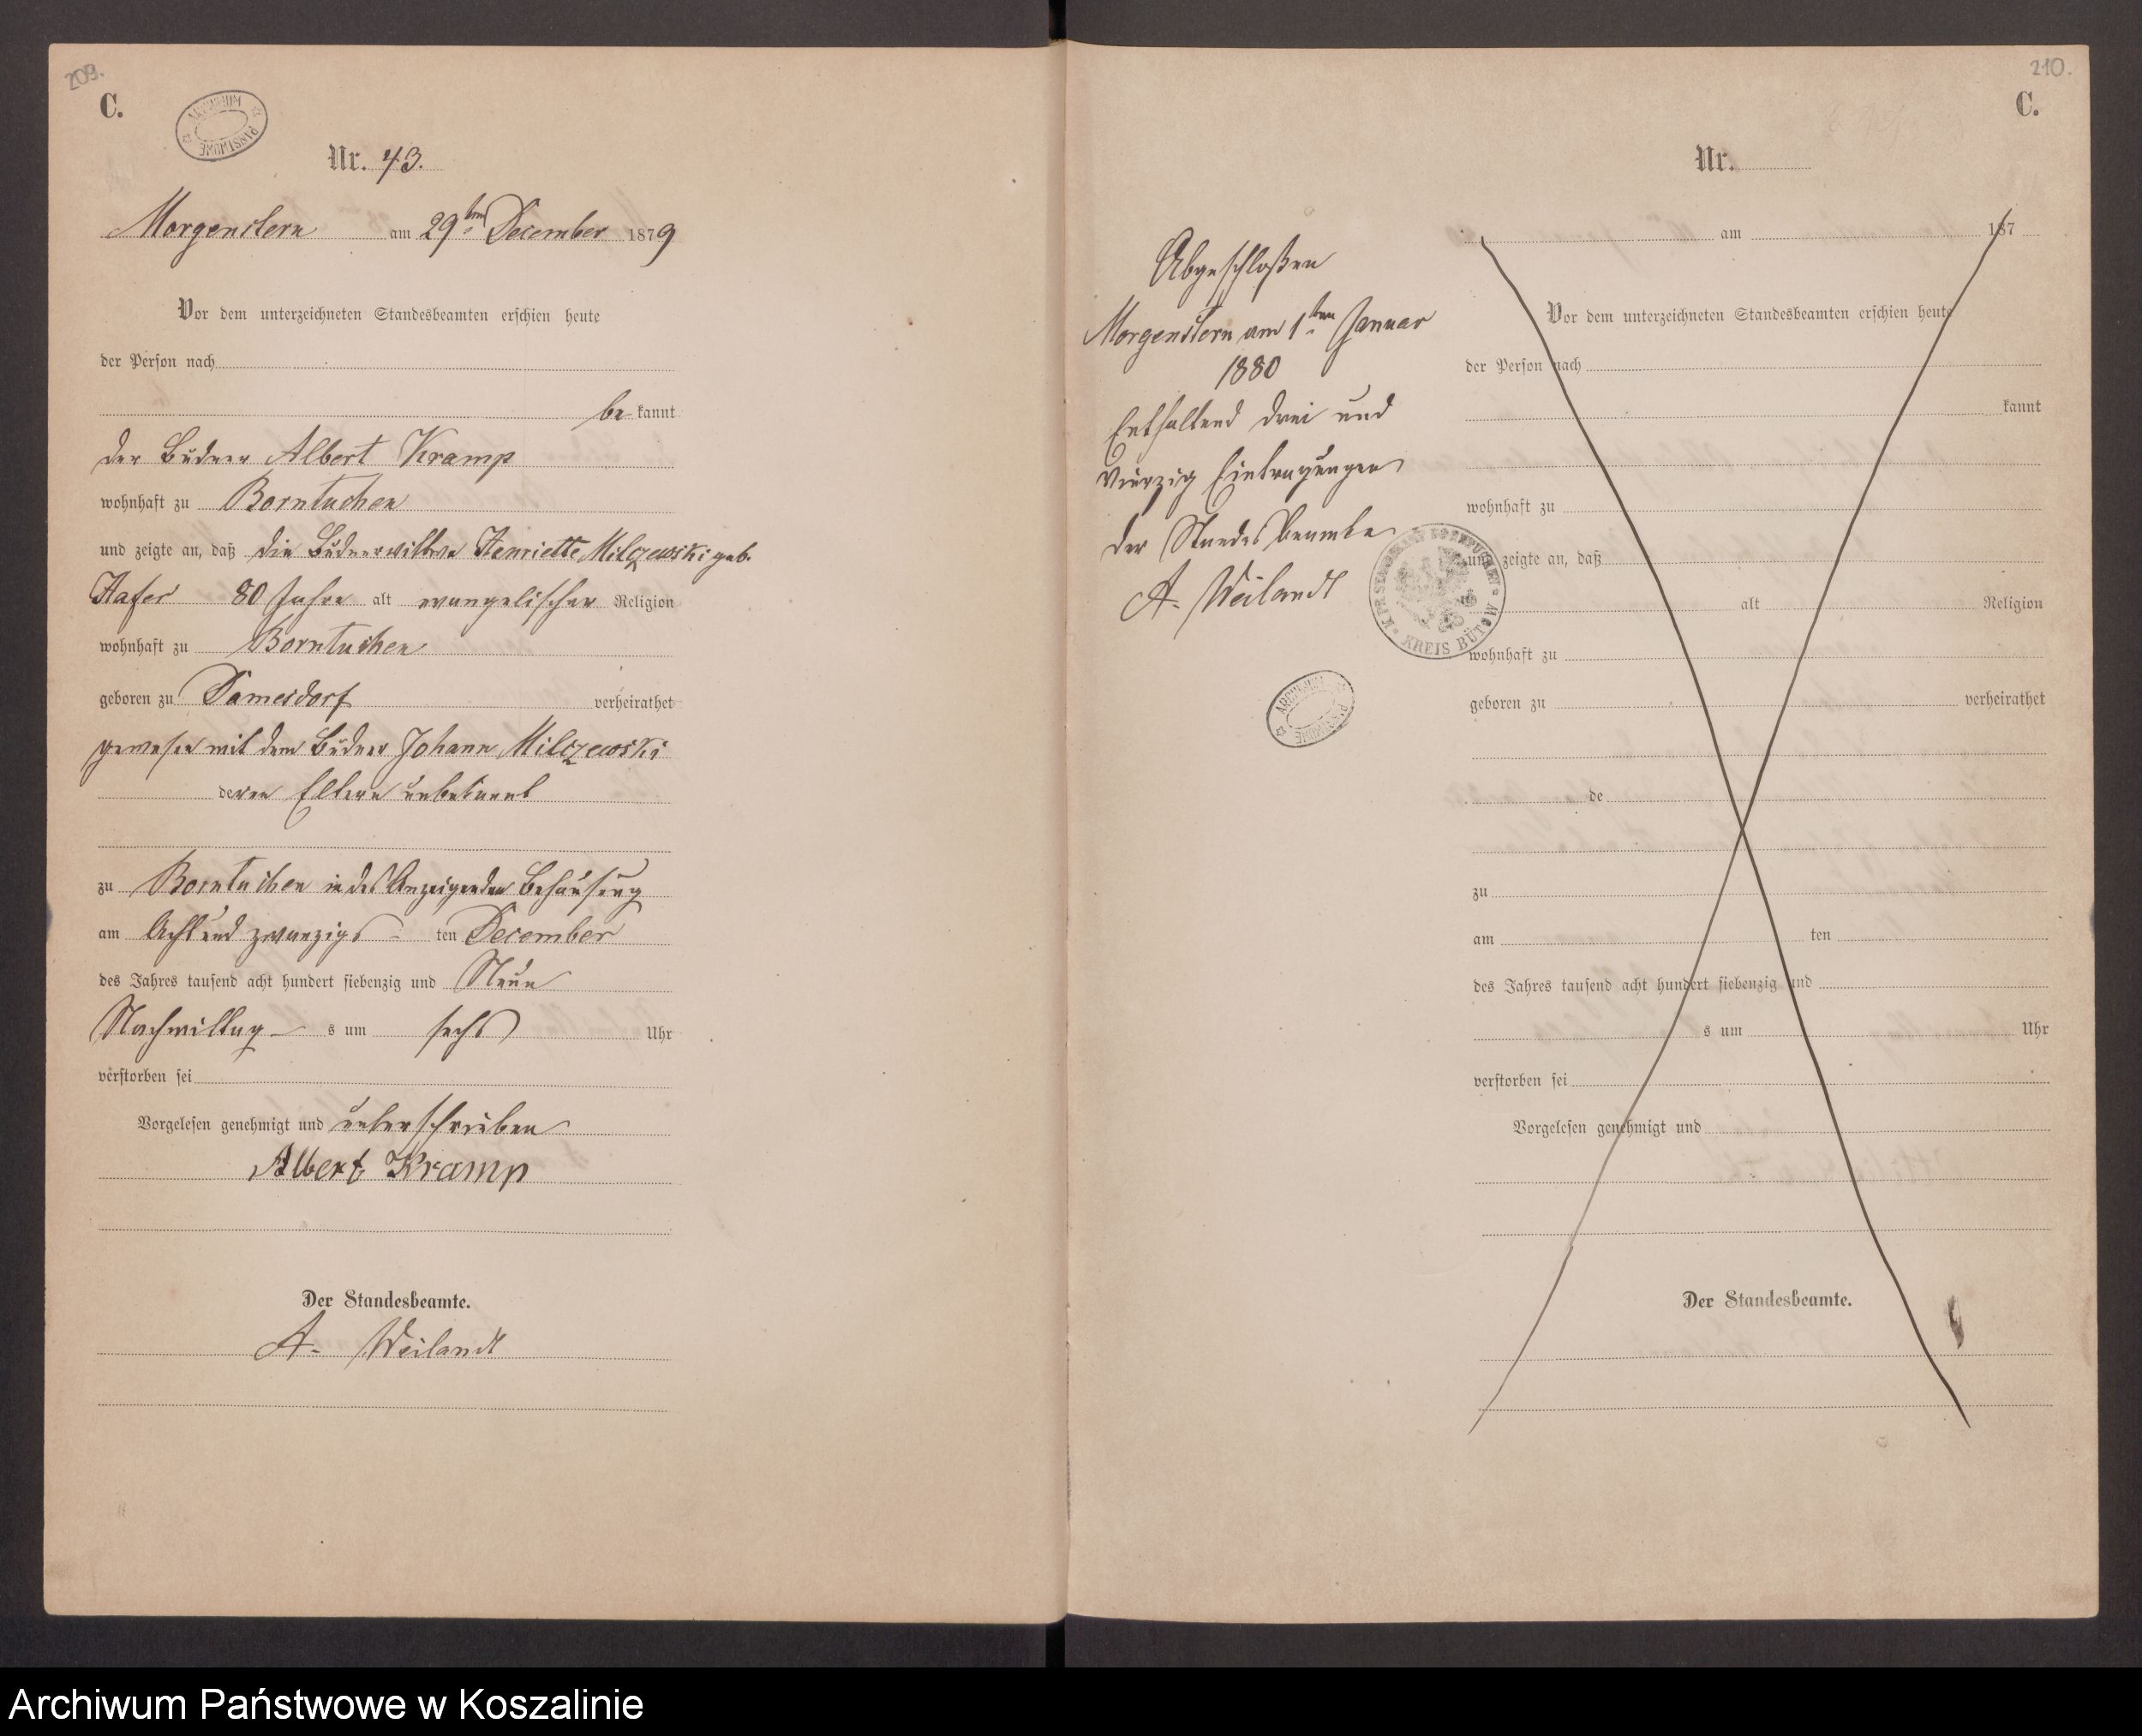 209.
C.
ARCHIWUM PAŃSTWOWE
Nr. 43.
Morgenstern am 29ten December 1879
Vor dem unterzeichneten Standesbeamten erschien heute
der Person nach
be kannt
der Büdner Albert Kramp
wohnhaft zu Borntuchen
und zeigte an, daß die Büdnerwittwe Henriette Milczewski geb.
Hafer 80 Jahre alt evangelischer Religion
wohnhaft zu Borntuchen
geboren zu Damesdorf verheirathet
gewesen mit dem Büdner Johann Milczewski
deren Eltern unbekannt
zu Borntuchen in des Anzeigenden Behausung
am Acht und zwanzigs ten December
des Jahres tausend acht hundert siebenzig und Neun
Nachmittag s um sechs Uhr
verstorben sei
Vorgelesen genehmigt und unterschrieben
Albert Kramp
Der Standesbeamte.
A. Weilandt
210.
C.
Abgeschloßen
Morgenstern am 1ten Januar
1880
Enthaltend drei und
vierzig Eintragungen
der Standesbeamte
A. Weilandt
KREIS BÜTOW
ARCHIWUM PAŃSTWOWE
Nr.
am 187
Vor dem unterzeichneten Standesbeamten erschien heute
der Person nach
kannt
wohnhaft zu
und zeigte an, daß
alt Religion
wohnhaft zu
geboren zu verheirathet
de
zu
am ten
des Jahres tausend acht hundert siebenzig und
s um Uhr
verstorben sei
Vorgelesen genehmigt und
Der Standesbeamte.
Archiwum Państwowe w Koszalinie